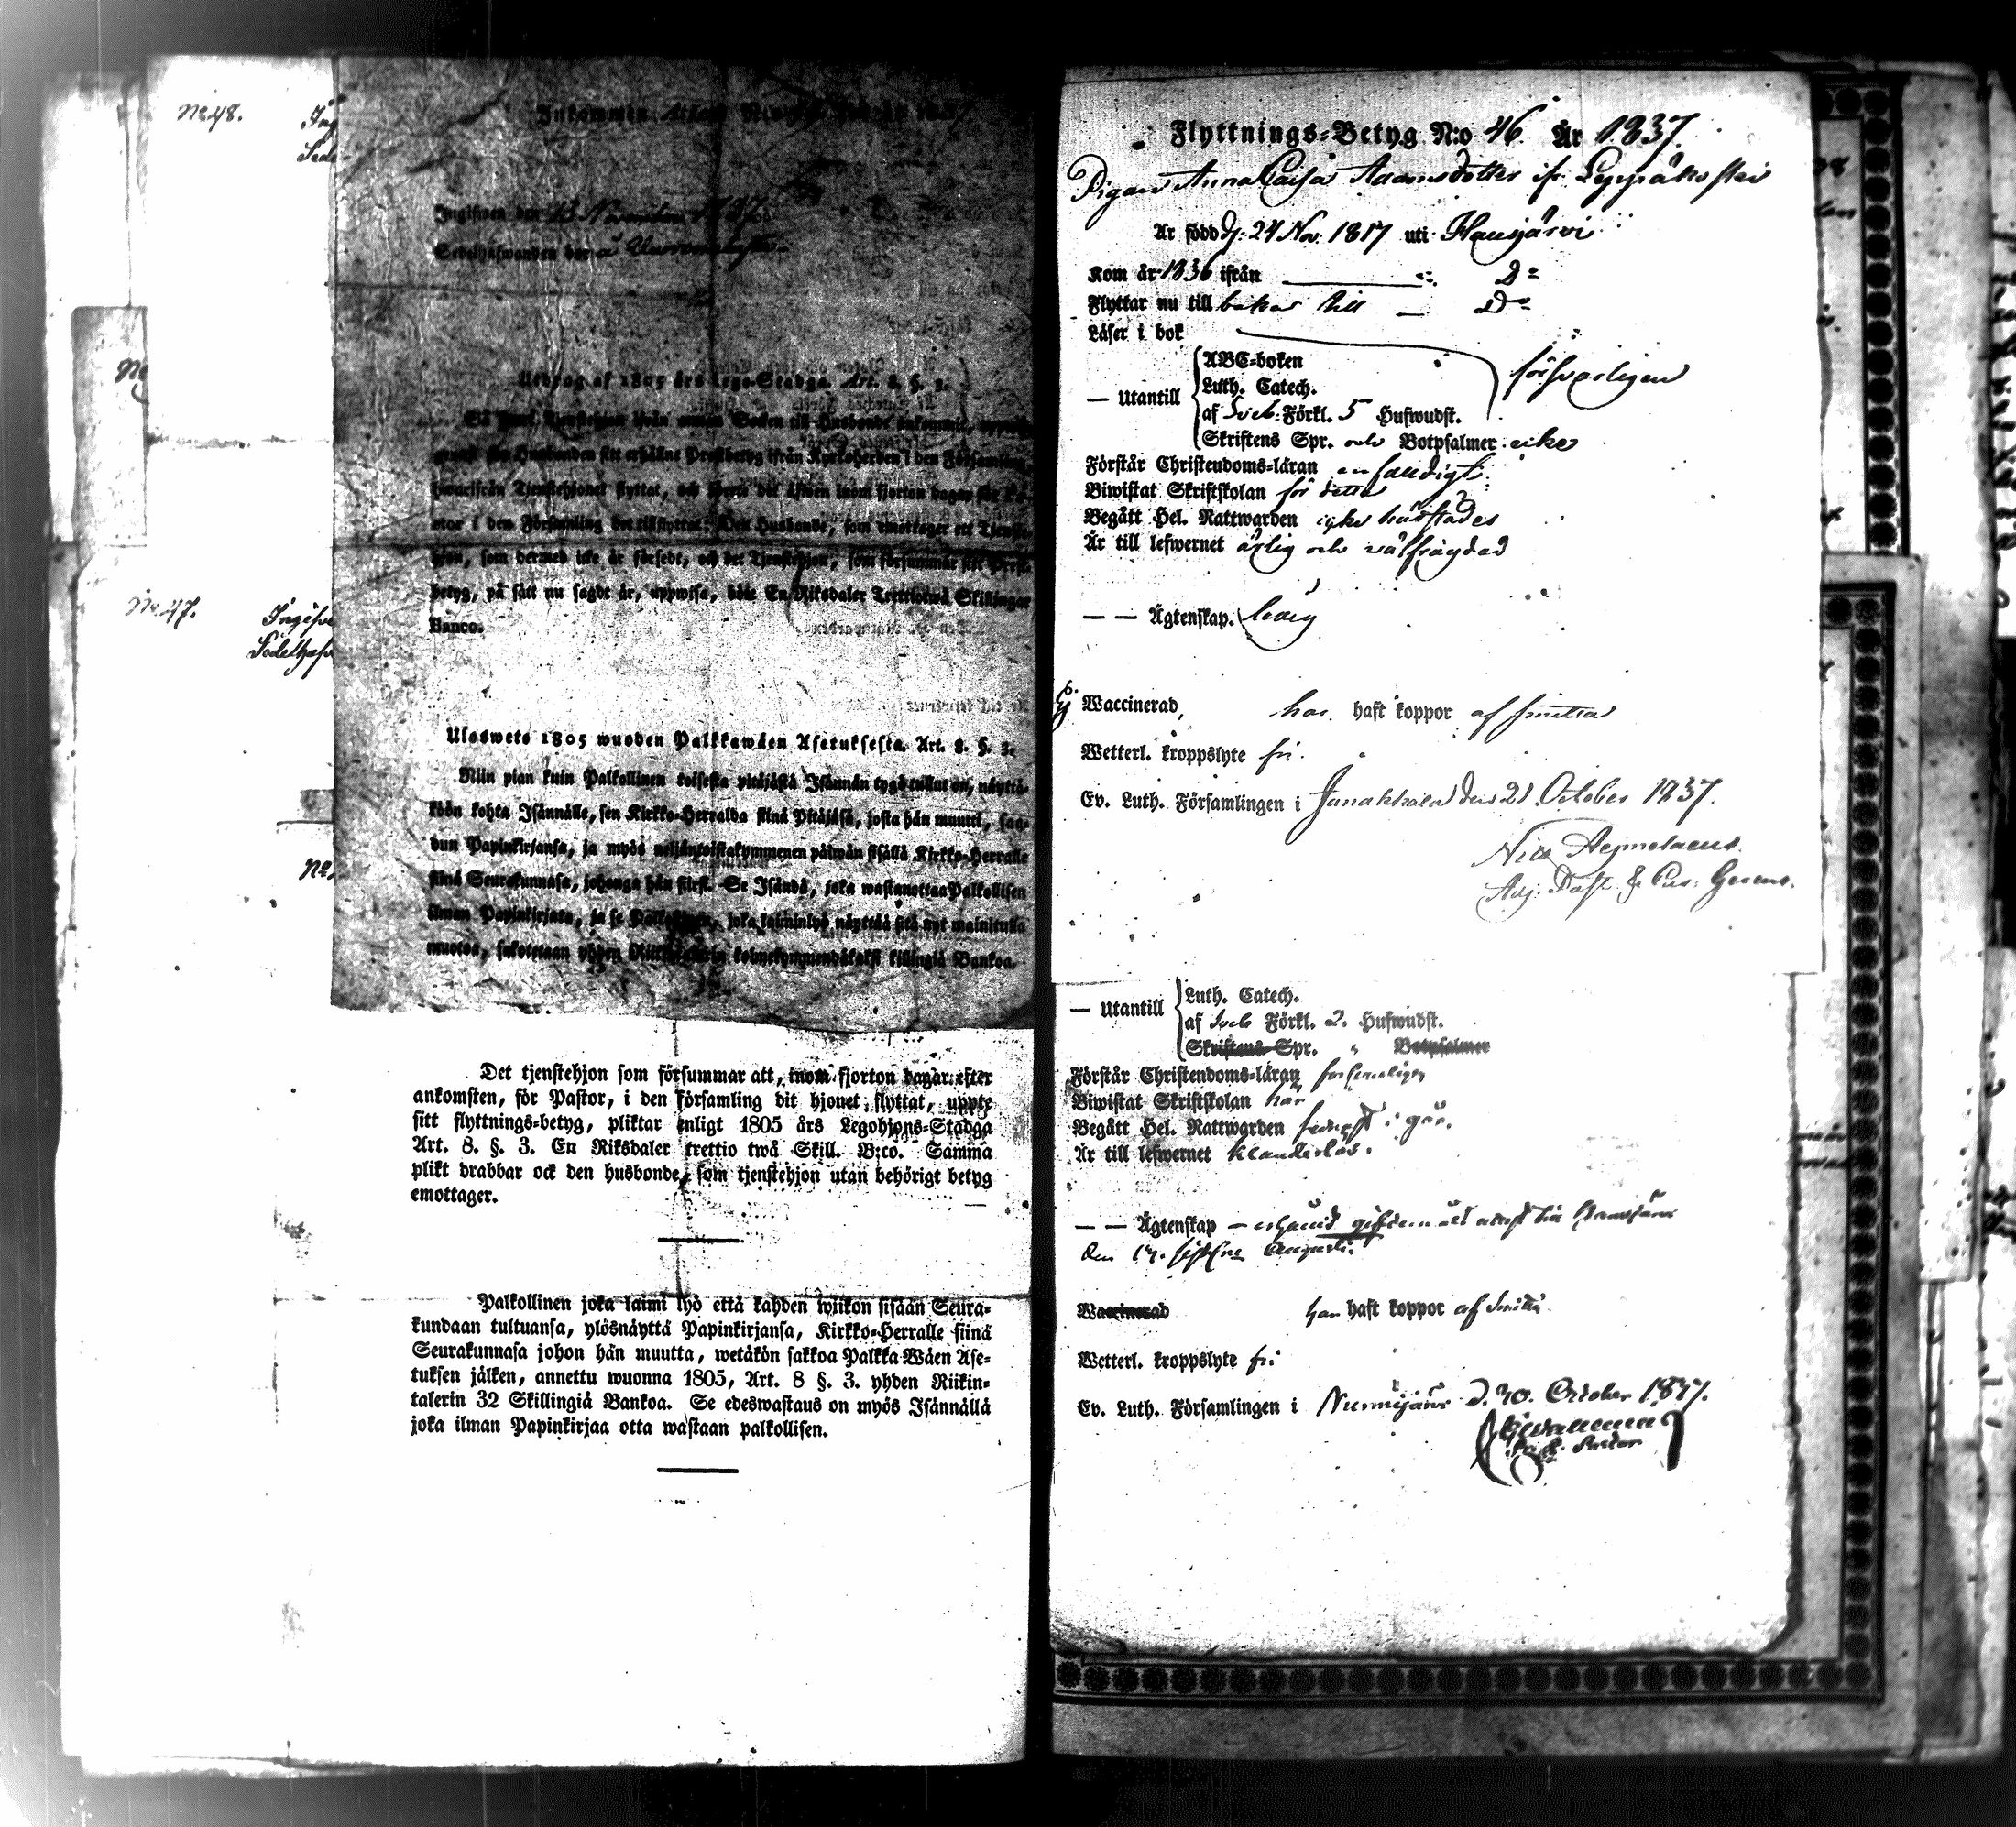 No 48.
No 47.
Ingifven den 13 November 1837
Sedelhafwanden bor å
Utdrag af 1805 års Lego-Stadga. Art. 8. §. 3.
hwarifrån Tjenstehjonet flyttat, och
stor i den Församling det tillflyttat. Den Husbonde, som emottager ett Tjenste-
hjon, som dermed icke är försedt, och det Tjenstehjon, som försummar sitt Prest-
betyg, på sätt nu sagdt är, uppwisa, böte En Riksdaler Trettiotwå Skillingar
Banco.
Ulosweto 1805 wuoden Palkkawäen Asetuksesta. Art. 8. §. 3.
Niin pian kuin Palkollinen toisesta pitäjästä Isännän tygö tullut on, näyttä-
köön kohta Isännälle, sen Kirkko-Herralda siinä Pitäjäsä, josta hän muutti, saa-
dun Papinkirjansa, ja myös neljäntoistakymmenen päiwän sisällä Kirkko-Herralle
siinä Seurakunnasa, johonga hän siirsi. Se Isändä, joka wastanottaa Palkollisen
ilman Papinkirjata, ja se Palkollinen, joka laiminlyö näyttää sitä nyt mainitulla
muotoa, sakotetaan yhden Riikintalerin kolmekymmendäkaksi killingiä Bankoa.
Det tjenstehjon som försummar att, inom fjorton dagar efter
ankomsten, för Pastor, i den församling dit hjonet flyttat, uppte
sitt flyttnings-betyg, pliktar enligt 1805 års Legohjons-Stadga
Art. 8. §. 3. En Riksdaler trettio twå Skill. B:co. Samma
plikt drabbar ock den husbonde, som tjenstehjon utan behörigt betyg
emottager.
Palkollinen joka laimi lyö että kahden wiikon sisään Seura-
kundaan tultuansa, ylösnäyttä Papinkirjansa, Kirkko-Herralle siinä
Seurakunnasa johon hän muutta, wetäkön sakkoa Palkka-Wäen Ase-
tuksen jälken, annettu wuonna 1805, Art. 8 §. 3. yhden Riikin-
talerin 32 Skillingiä Bankoa. Se edeswastaus on myös Isännällä
joka ilman Papinkirjaa otta wastaan palkollisen.
Flyttnings-Betyg N:o 46. År 1837.
Pigan Anna Caisa Adamsdotter ifr Leppäkoski
Är född d. 24 Nov. 1817 uti Hausjärvi
Kom år 1836 ifrån — D:o
Flyttar nu till bakas till — D:o
Läser i bok
— Utantill
ABC-boken
Luth. Catech.
af Sveb: Förkl. 5 Hufwudst.
Skriftens Spr. och Botpsalmer icke
försvarligen
Förstår Christendoms-läran enfaldigt
Biwistat Skriftskolan för detta
Begått Hel. Nattwarden icke härstädes
Är till lefwernet ärlig och välfrägdad
— — Ägtenskap. ledig
Ej Waccinerad, har haft koppor af smitta
Wetterl. kroppslyte fri.
Ev. Luth. Församlingen i Janakkala den 21 October 1837.
Nils Aejmelaeus.
Adj. Past. & Cur. Gerens.
— Utantill
Luth. Catech.
af Sveb Förkl. 2. Hufwudst.
Skriftens Spr. " Botpsalmer
Förstår Christendoms-läran försvarligen
Biwistat Skriftskolan här
Begått Hel. Nattwarden sednast i går.
Är till lefwernet klanderlös.
— — Ägtenskap —
den 17. sistl. Augusti.
Waccinerad har haft koppor af smitta
Wetterl. kroppslyte fri
Ev. Luth. Församlingen i Nurmijärvi d. 30. October 1837.